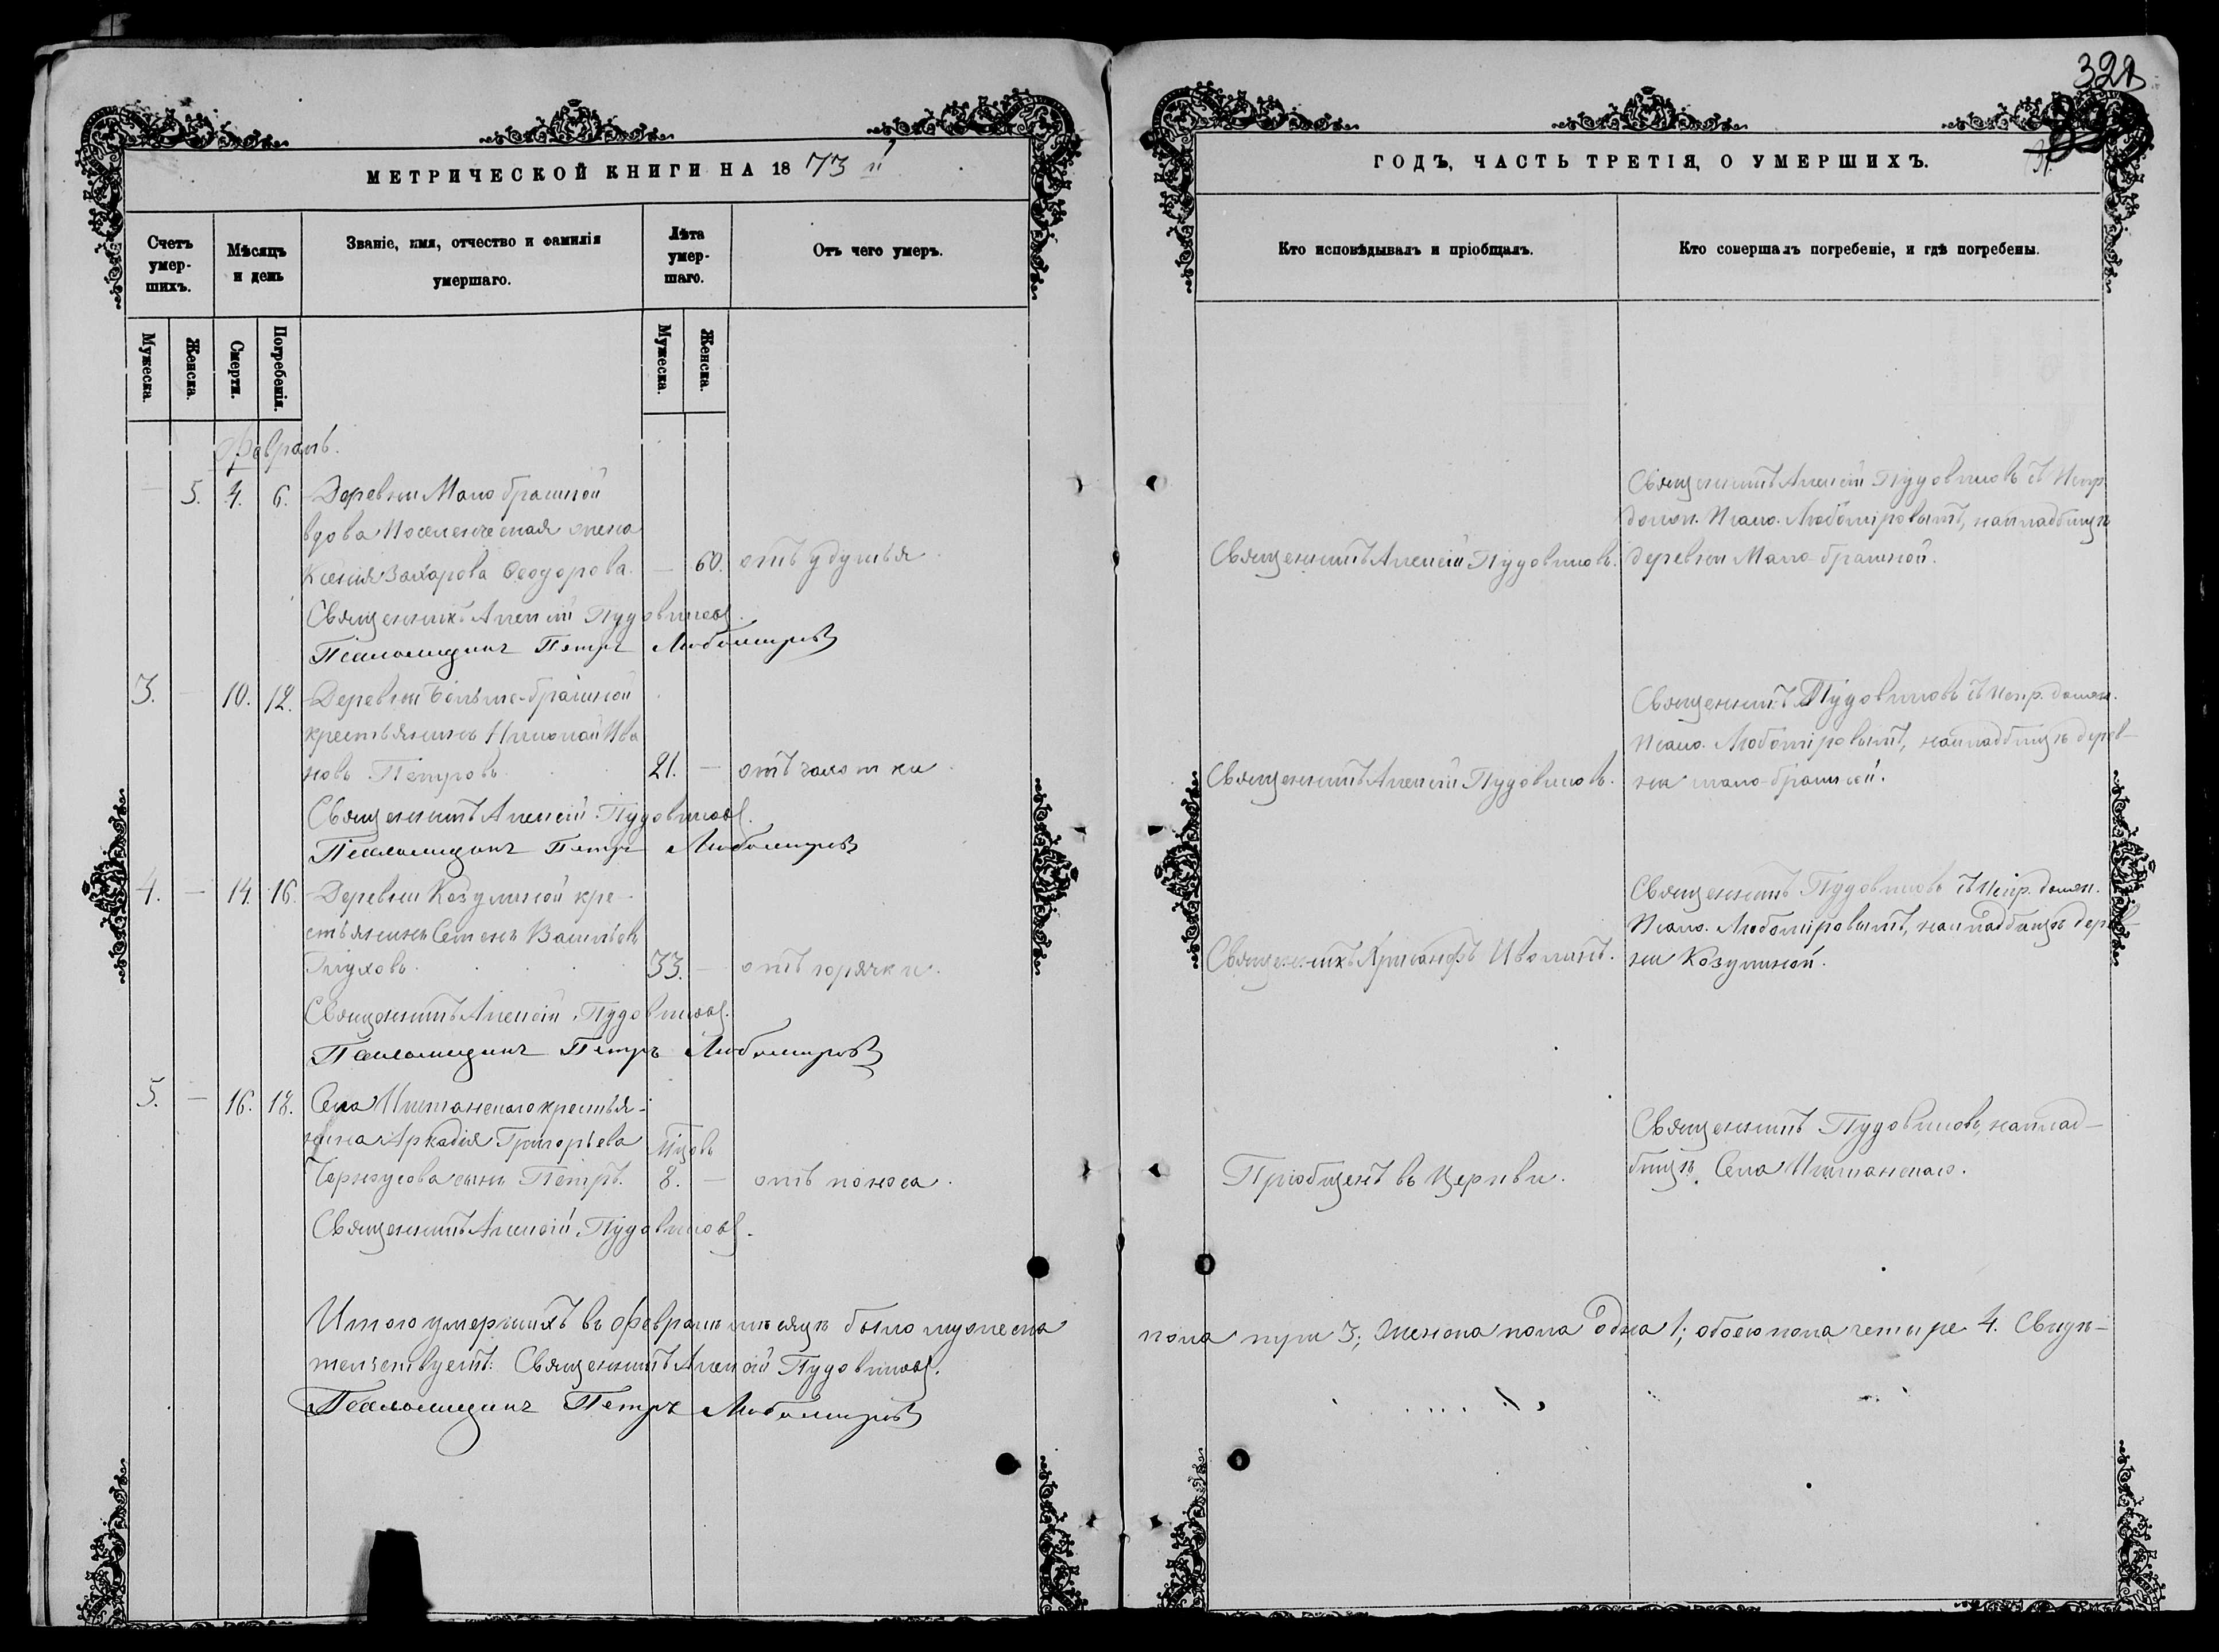 322
31.
МЕТРИЧЕСКОЙ КНИГИ НА 1873 й
ГОДЪ, ЧАСТЬ ТРЕТІЯ, О УМЕРШИХЪ.
Счетъ умер-шихъ.
Мѣсяцъ и день
Званіе, имя, отчество и фамилія умершаго.
Лѣта умер-шаго.
Отъ чего умеръ.
Кто исповѣдывалъ и пріобщалъ.
Кто совершалъ погребеніе, и гдѣ погребены.
Мужеска.
Женска.
Смерти.
Погребенія.
Мужеска.
Женска.
Февраль.
— 5. 4. 6. Деревни Мало брашной
вдова Поселенческая жена
Ксенія Захарова Ѳеодорова. — 60. отъ удушья.
Священникъ Алексій Пудовиковъ.
Священникъ Алексій Пудовиковъ съ Испр.
должн. Псало. Любомировымъ, на кладбищѣ
деревни Мало-брашной.
Священникъ Алексій Пудовиковъ.
Псаломщикъ Петръ Любомировъ
3. — 10. 12. Деревни Больше-брашной
крестьянинъ Николай Ива
новъ Петровъ. 21. — отъ чахотки.
Священникъ Алексій Пудовиковъ.
Священникъ Пудовиковъ съ Испр. должн.
Псало. Любомировымъ, на кладбищѣ дерев-
ни мало-брашной.
Священникъ Алексій Пудовиковъ.
Псаломщикъ Петръ Любомировъ
4. — 14. 16. Деревни Козулиной кре-
стьянинъ Семенъ Васильевъ
Глуховъ. 33. — отъ горячки.
Священникъ Хрисанфъ Иволинъ.
Священникъ Пудовиковъ съ Испр. должн.
Псало. Любомировымъ, на кладбищѣ дерев-
ни Козулиной.
Священникъ Алексій Пудовиковъ.
Псаломщикъ Петръ Любомировъ
5. — 16. 18. Села крестья-
нина Аркадія Григорьева
Черноусова сынъ Петръ. мѣсяцовъ 8. — отъ поноса.
Пріобщенъ въ Церкви.
Священникъ Пудовиковъ, на клад-
бищѣ Села
Священникъ Алексій Пудовиковъ.
Итого умершихъ въ Февралѣ мѣсяцѣ было мужеска
пола три 3; женска пола одна 1; обоего пола четыре 4. Свидѣ-
тельствуетъ: Священникъ Алексій Пудовиковъ.
Псаломщикъ Петръ Любомировъ